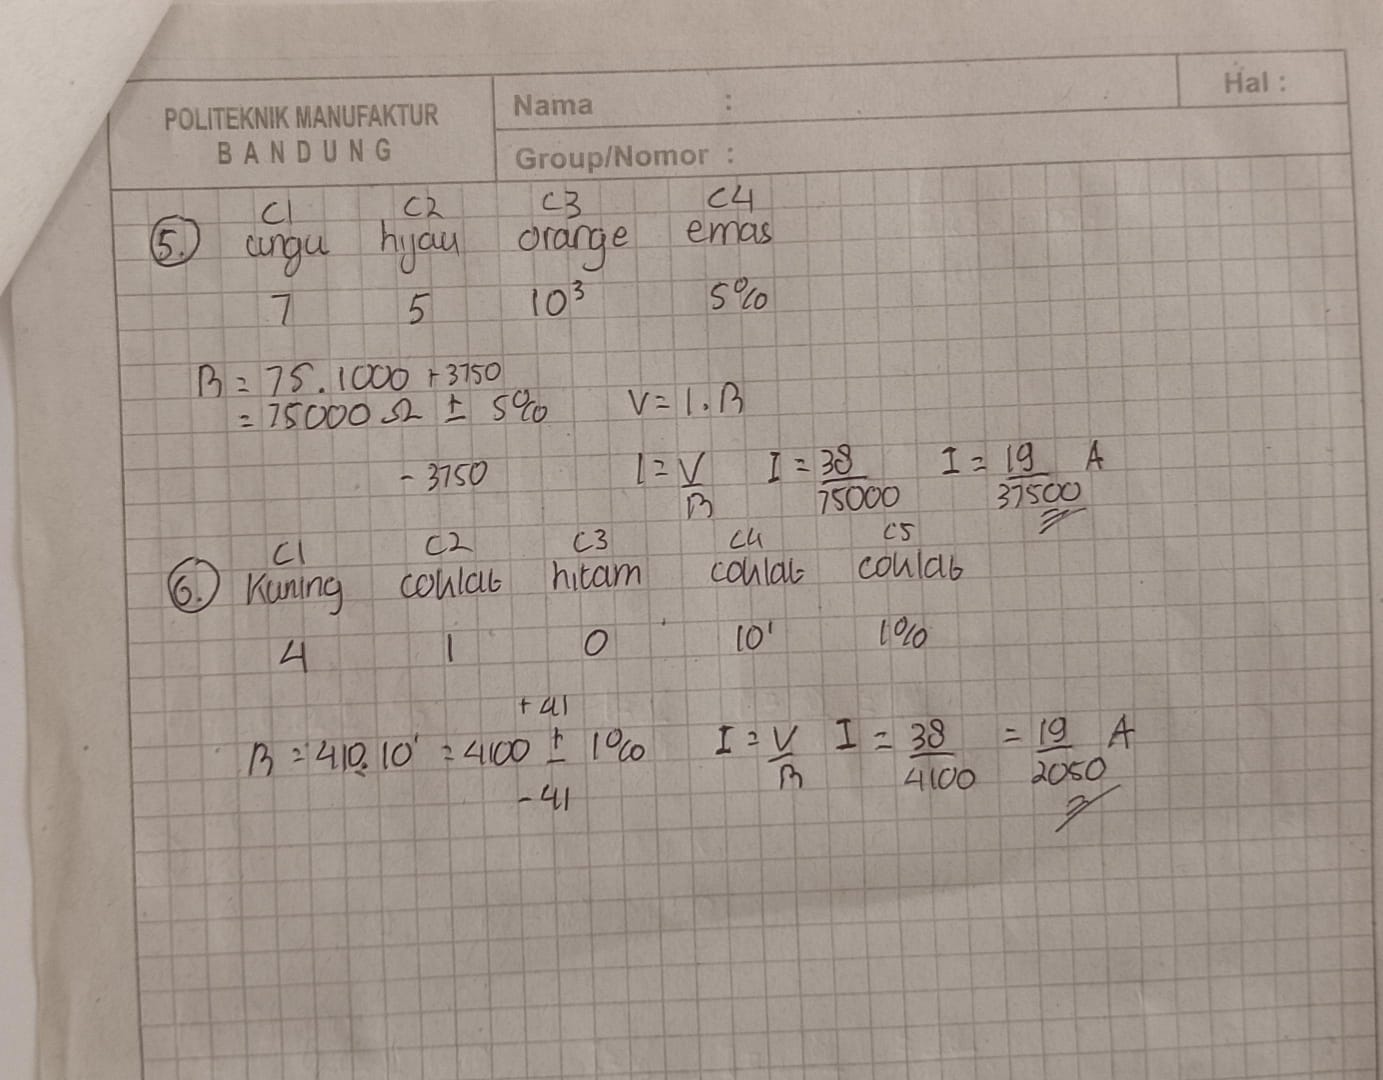 POLITEKNIK MANUFAKTUR
BANDUNG
Nama :
Hal :
Group/Nomor :
C1 C2 C3 C4
5. ungu hijau orange emas
7 5 10³ 5%
R = 75.1000 + 3750
= 75000 Ω ± 5% V = I.R
- 3750 I = V/R I = 38/75000 I = 19/37500 A
C1 C2 C3 C4 C5
6. Kuning coklat hitam coklat coklat
4 1 0 10¹ 1%
+ 41
R = 410.10¹ = 4100 ± 1% I = V/R I = 38/4100 = 19/2050 A
- 41